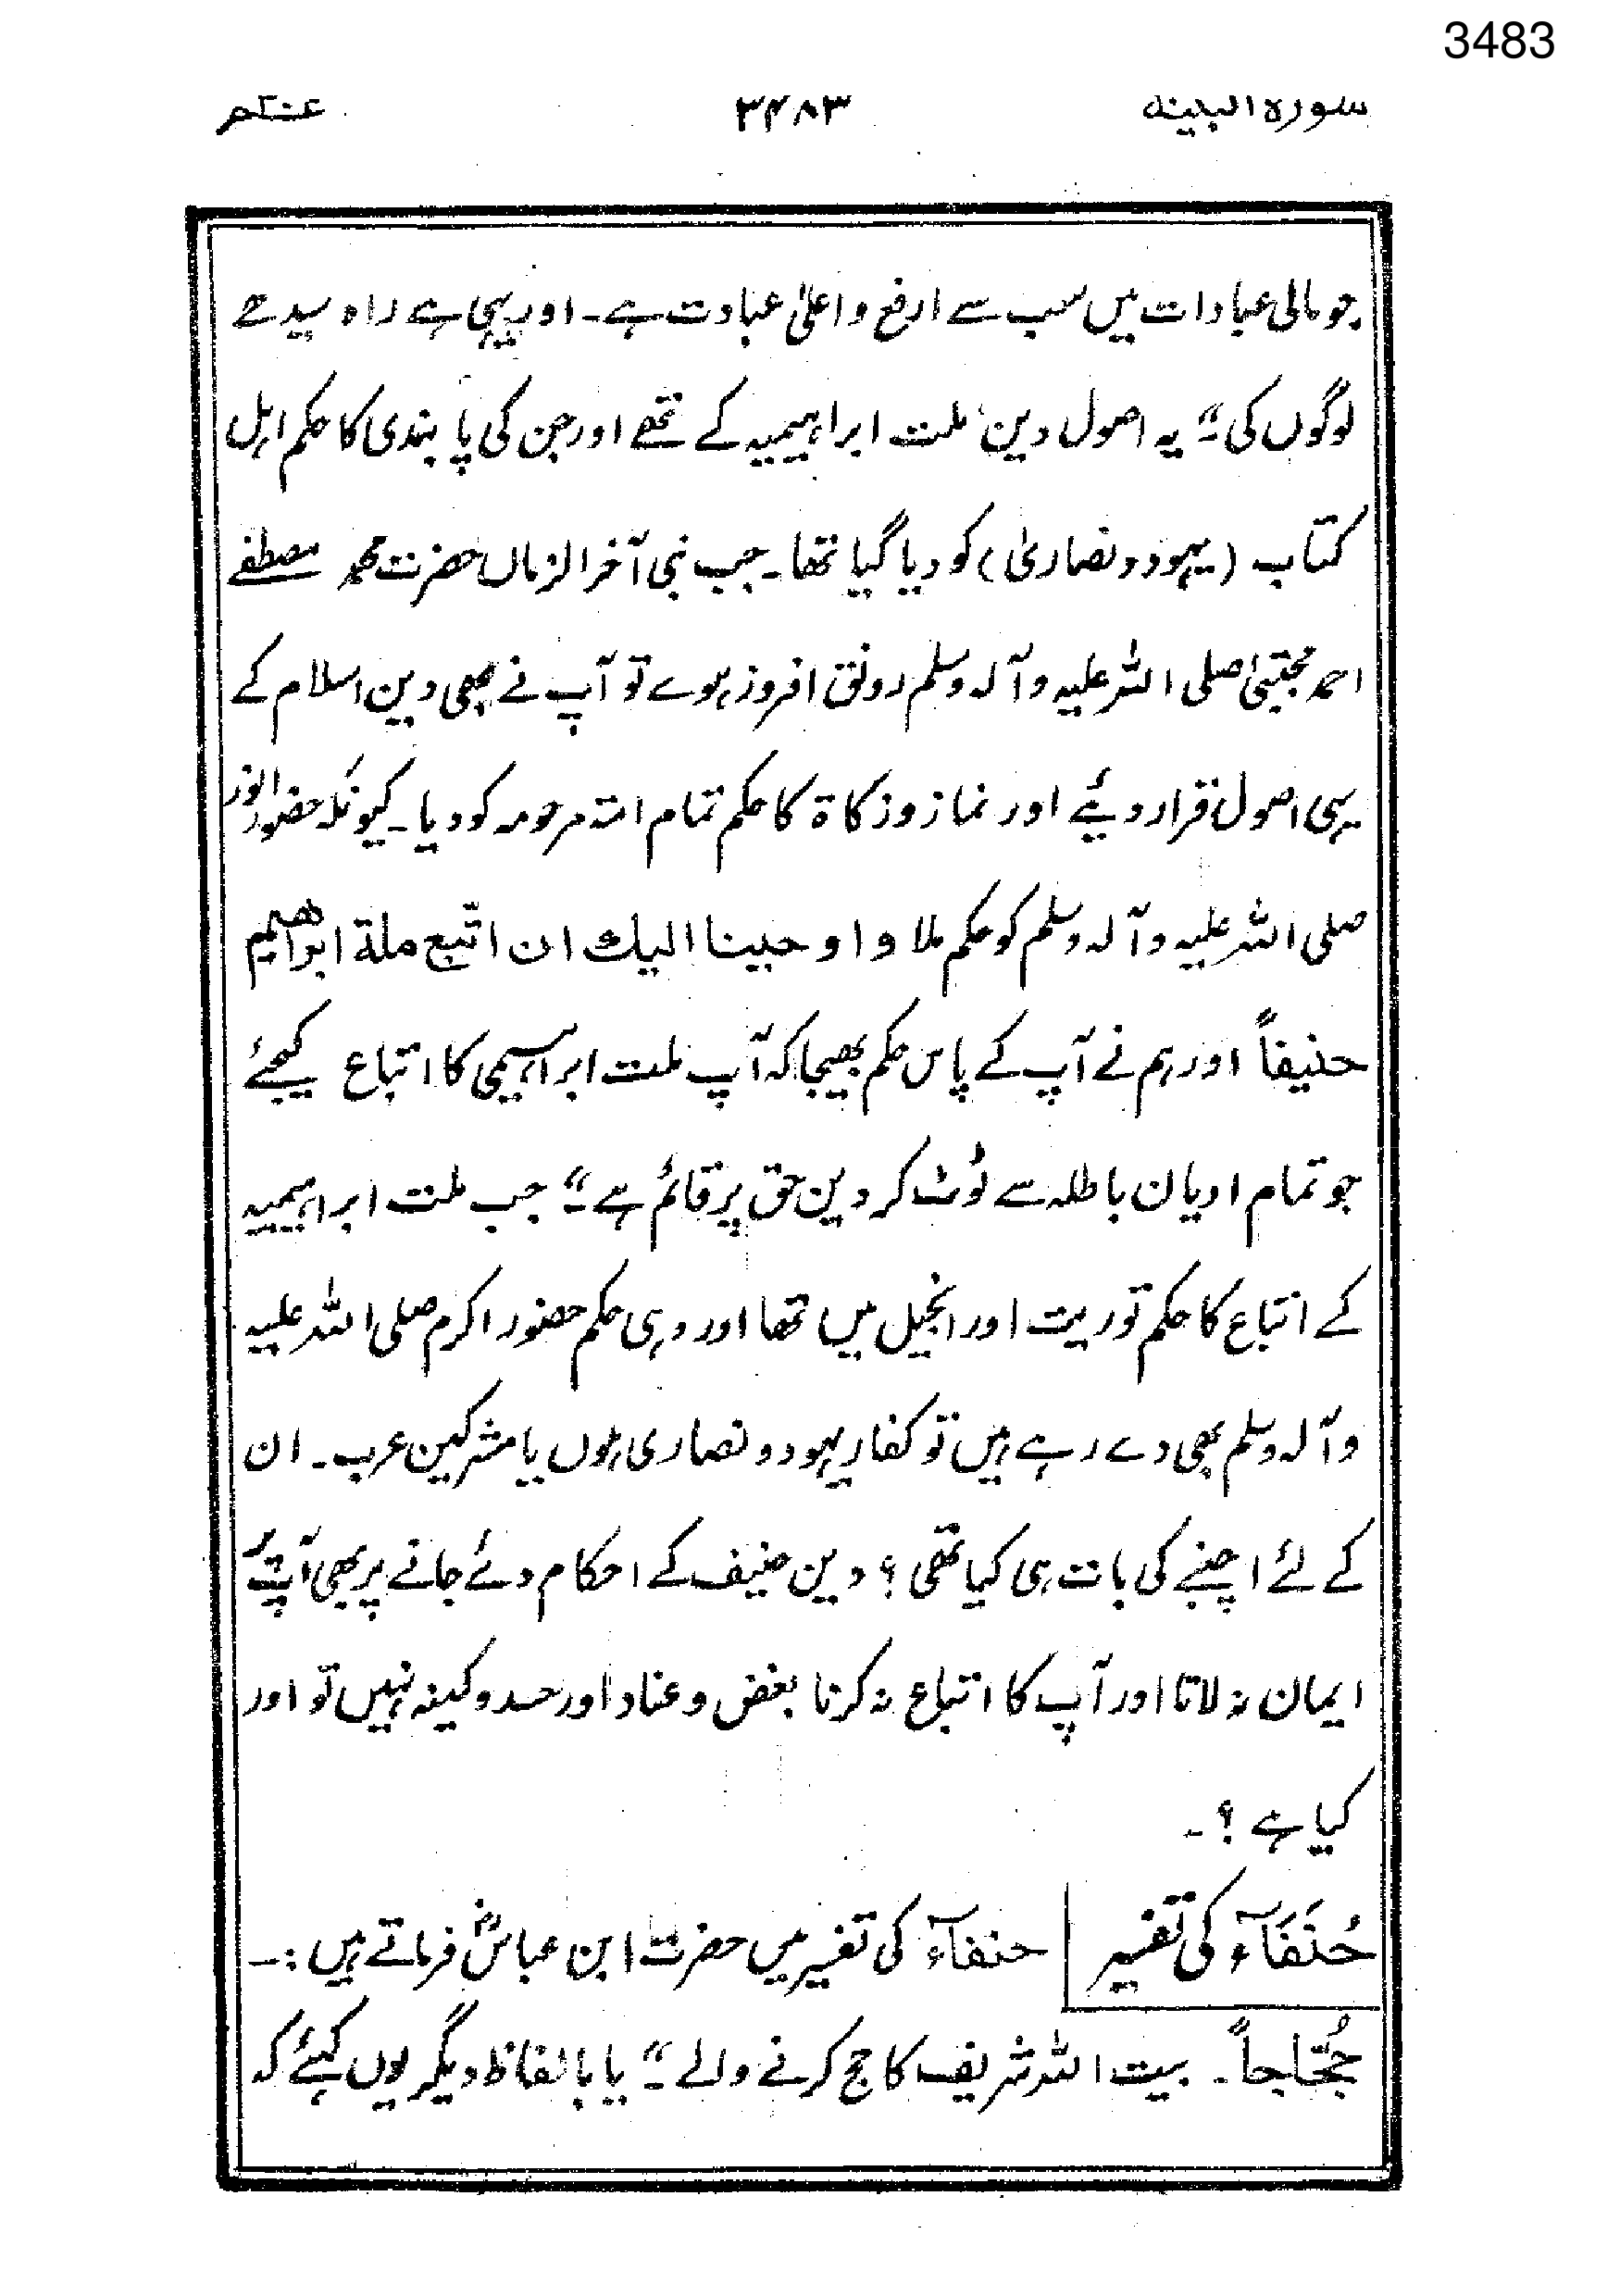 3483
سورہ البینہ ۳۴۸۳ عنکم
جو مالی عبادات میں سب سے ارفع و اعلیٰ عبادت ہے۔ اور یہی ہے راہ سیدھے
لوگوں کی ۔“ یہ اصول دین ملت ابراہیمیہ کے تھے اور جن کی پابندی کا حکم اہل
کتاب (یہود و نصاریٰ) کو دیا گیا تھا۔ جب نبی آخر الزماں حضرت محمد مصطفےٰ
احمد مجتبیٰ صلی اللہ علیہ وآلہ وسلم رونق افروز ہوے تو آپ نے بھی دین اسلام کے
یہی اصول قرار دیئے اور نماز و زکاۃ کا حکم تمام امتہ مرحومہ کو دیا۔ کیونکہ حضور انور
صلی اللہ علیہ وآلہ وسلم کو حکم ملا و اوحینا الیک ان اتبع ملۃ ابراھیم
حنیفاً اور ہم نے آپ کے پاس حکم بھیجا کہ آپ ملت ابراہیمی کا اتباع کیجئے
جو تمام ادیان باطلہ سے ٹوٹ کر دین حق پر قائم ہے ۔“ جب ملت ابراہیمیہ
کے اتباع کا حکم توریت اور انجیل میں تھا اور وہی حکم حضور اکرم صلی اللہ علیہ
وآلہ وسلم بھی دے رہے ہیں تو کفار یہود و نصاری ہوں یا مشرکین عرب۔ ان
کے لئے اچنبے کی بات ہی کیا تھی ؟ دین حنیف کے احکام دئے جانے پر بھی آپؐ پر
ایمان نہ لانا اور آپ کا اتباع نہ کرنا بغض و عناد اور حسد و کینہ نہیں تو اور
کیا ہے ؟۔
حُنَفَآءَ کی تفسیر حنفآءَ کی تفسیر میں حضرت ابن عباسؓ فرماتے ہیں :۔
حُجّاجاً۔ بیت اللہ شریف کا حج کرنے والے ۔“ یا بالفاظ دیگر یوں کہئے کہ